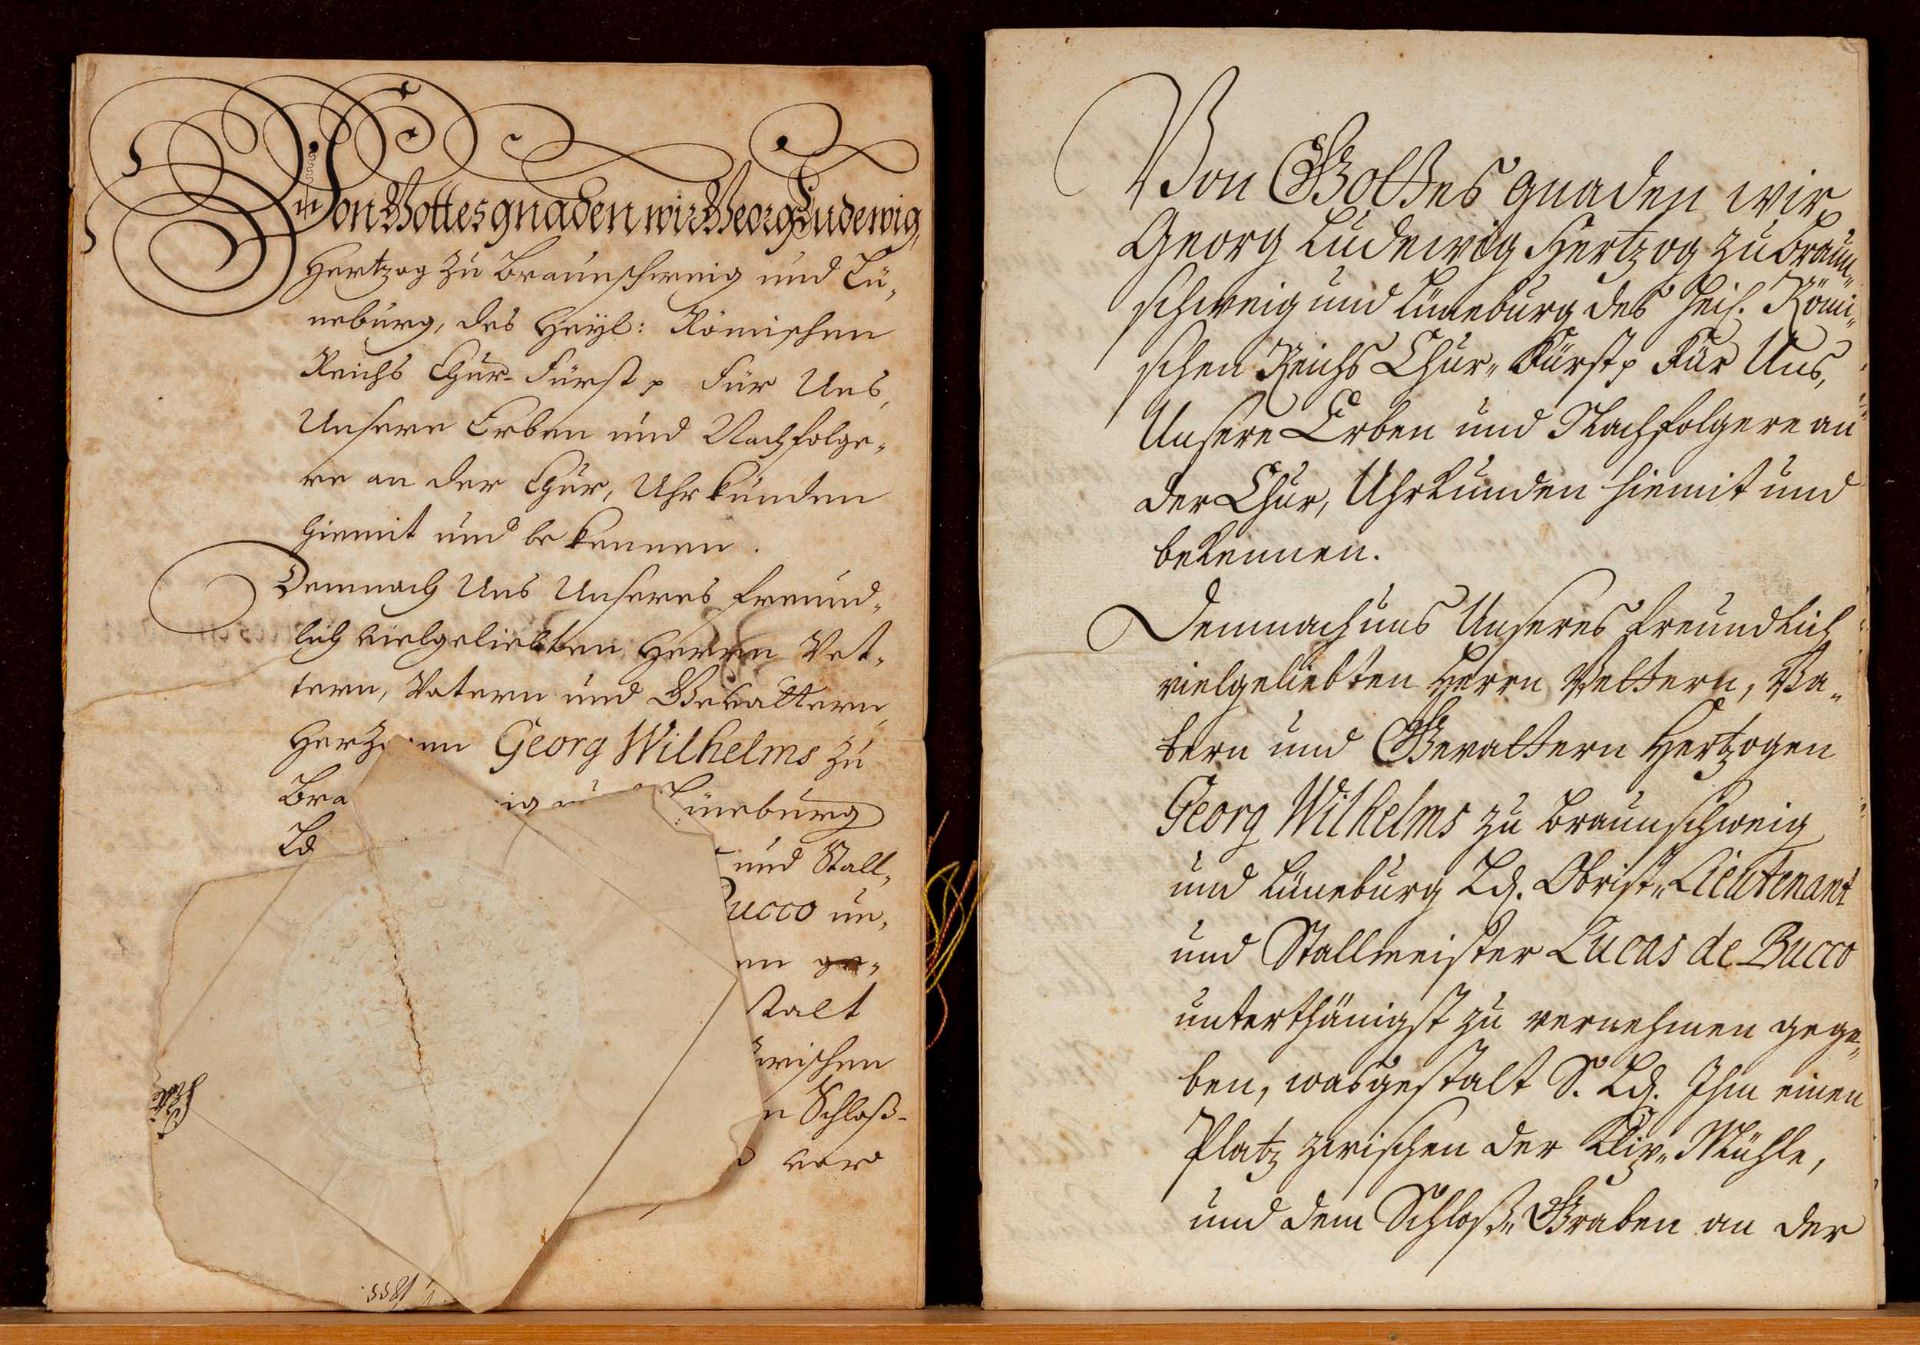 Von Gottes gnaden wir Georg Ludewig,
Hertzog zu Braunschweig und Lü-
neburg, des Heyl: Römischen
Reichs Chur-Fürst p Für Uns,
Unsere Erben und Nachfolge-
re an der Chur, Uhrkunden
hiemit und bekennen.
Demnach Uns Unseres freund-
lich vielgeliebten Herrn Vet-
tern, Vatern und Gevattern,
Georg Wilhelms zu
Bra ig Lüneburg
Ld
und Stall-
Bucco un-
en ge-
stalt
zwischen
n Schloß-
vor
Von Gottes gnaden wir
Georg Ludewig Hertzog zu Braun-
schweig und Lüneburg des Heil. Römi-
schen Reichs Chur-Fürst p Für Uns,
Unsere Erben und Nachfolgere an
der Chur, Uhrkunden hiemit und
bekennen.
Demnach uns Unseres freundlich
vielgeliebten Herrn Vettern, Va-
tern und Gevattern Hertzogen
Georg Wilhelms zu Braunschweig
und Lüneburg Ld. Obrist-Lieutenant
und Stallmeister Lucas de Bucco
unterthänigst zu vernehmen gege-
ben, wasgestalt S. Ld. Ihm einen
Platz zwischen der Klip-Mühle,
und dem Schloß-Graben an der